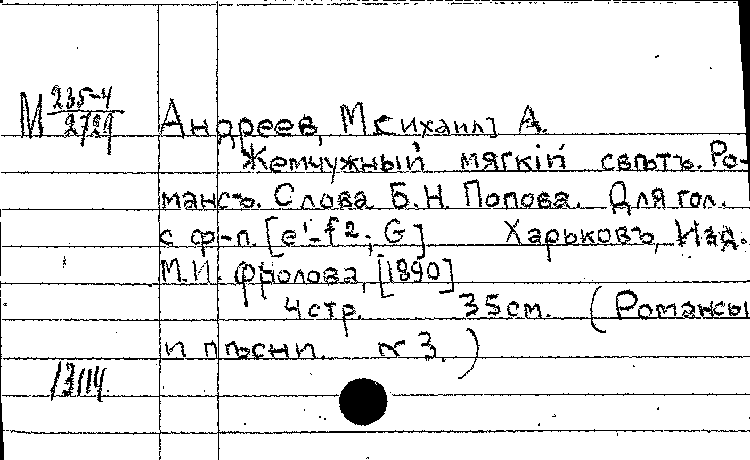 М 235-4/2729
Андреев, М[ихаил] А.
Жемчужный мягкій свѣтъ. Ро-
мансъ. Слова Б.Н. Попова. Для гол.
с ф-п. [e¹-f²; G] Харьковъ, Изд.
М.И. Фролова, [1890]
4 стр. 35 см. (Романсы
и пѣсни. № 3.)
13114